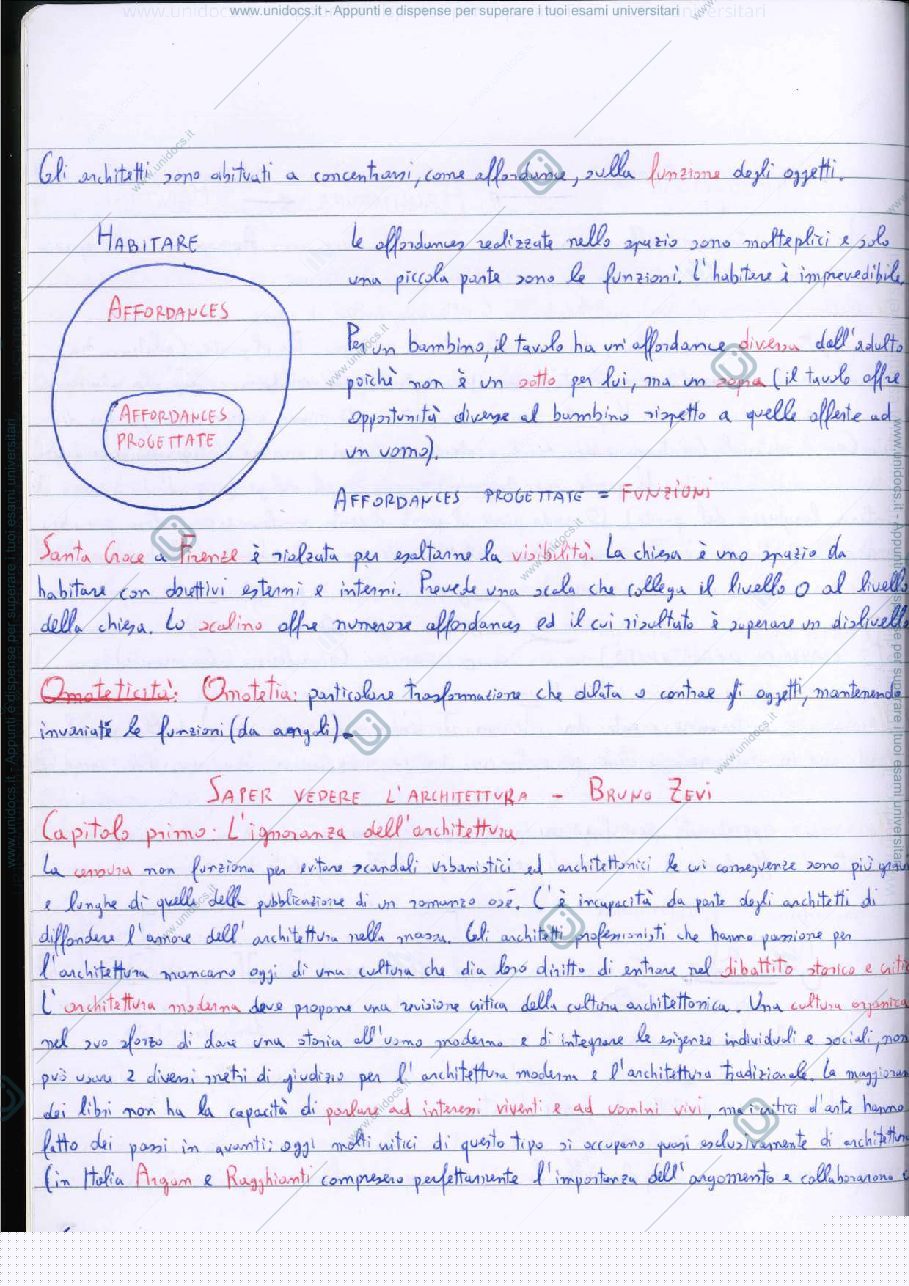 www.unidocs.it - Appunti e dispense per superare i tuoi esami universitari
Gli architetti sono abituati a concentrarsi, come affordance, sulla funzione degli oggetti.
HABITARE
AFFORDANCES
AFFORDANCES
PROGETTATE
Le affordances realizzate nello spazio sono molteplici e solo
una piccola parte sono le funzioni. L'habitare è imprevedibile.
Per un bambino, il tavolo ha un'affordance diversa dall'adulto
poichè non è un sotto per lui, ma un sopra (il tavolo offre
opportunità diverse al bambino rispetto a quelle offerte ad
un uomo).
AFFORDANCES PROGETTATE = FUNZIONI
Santa Croce a Firenze è rialzata per esaltarne la visibilità. La chiesa è uno spazio da
habitare con obiettivi esterni e interni. Prevede una scala che collega il livello 0 al livello
della chiesa. Lo scalino offre numerose affordances ed il cui risultato è superare un dislivello
Omoteticità: Omotetia: particolare trasformazione che dilata o contrae gli oggetti, mantenendo
invariate le funzioni (da angoli).
SAPER VEDERE L'ARCHITETTURA - BRUNO ZEVI
Capitolo primo: L'ignoranza dell'architettura
La censura non funziona per evitare scandali urbanistici ed architettonici le cui conseguenze sono più gravi
e lunghe di quelle della pubblicazione di un romanzo osé. C'è incapacità da parte degli architetti di
diffondere l'amore dell'architettura nella massa. Gli architetti professionisti che hanno passione per
l'architettura mancano oggi di una cultura che dia loro diritto di entrare nel dibattito storico e critic
L'architettura moderna deve proporre una revisione critica della cultura architettonica. Una cultura organica
nel suo sforzo di dare una storia all'uomo moderno e di integrare le esigenze individuali e sociali, non
può usare 2 diversi metri di giudizio per l'architettura moderna e l'architettura tradizionale. La maggioran
dei libri non ha la capacità di parlare ad interessi viventi e ad uomini vivi, ma i critici d'arte hanno
fatto dei passi in avanti: oggi molti critici di questo tipo si occupano quasi esclusivamente di architettura
(in Italia Argan e Ragghianti compresero perfettamente l'importanza dell'argomento e collaborarono